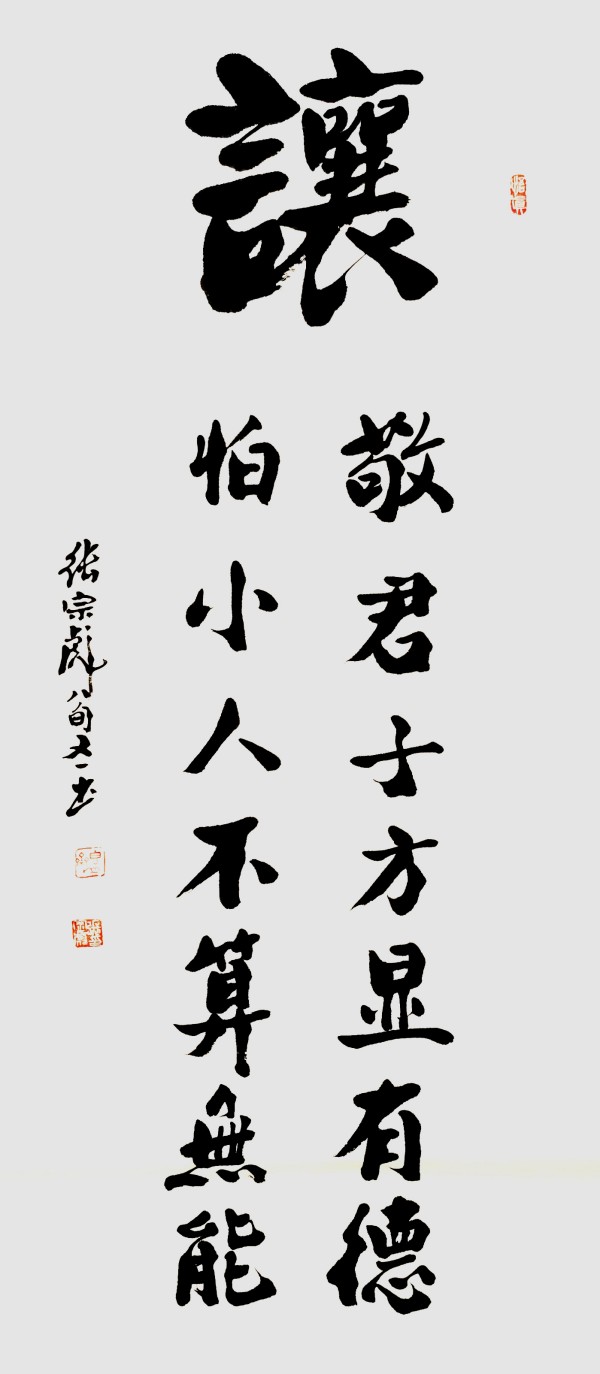 讓
敬君子方显有德
怕小人不算無能
张宗彪八旬又一书